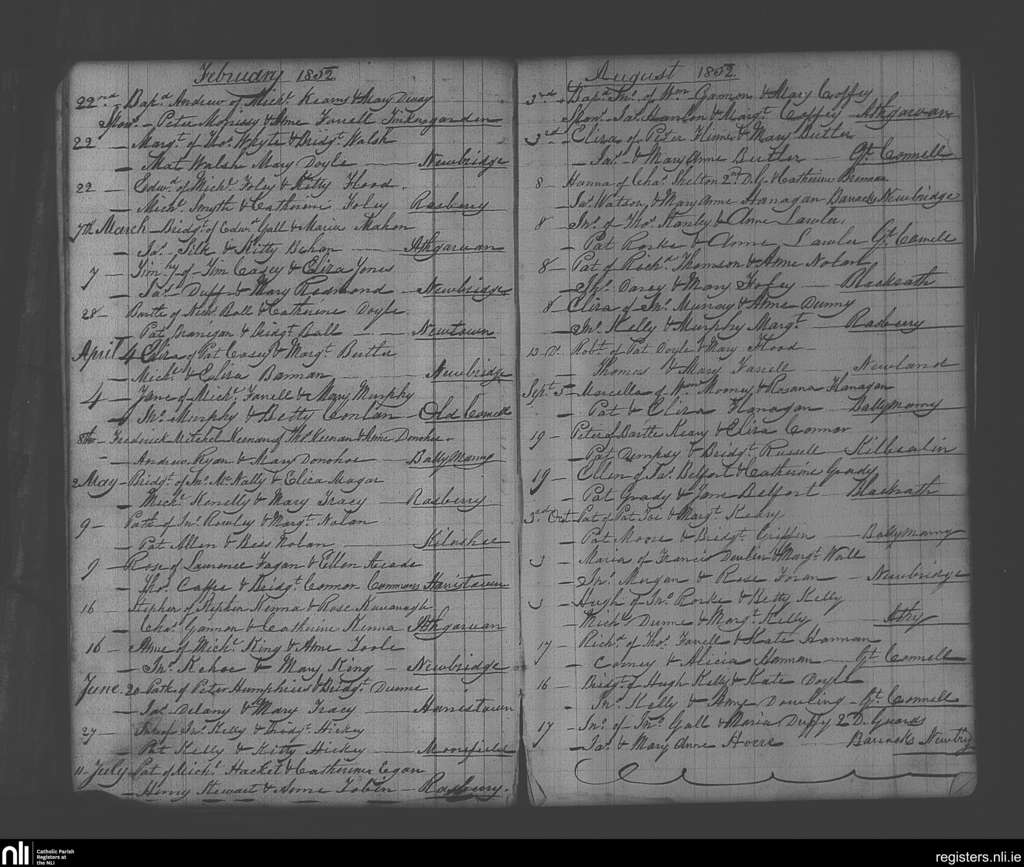 February 1852
22nd Bapd Andrew of Michl Keams & Mary
Spon. - Peter Morrissy & Anne Farrell
22 - Margt of Thos Whyte & Bridgt Walsh
- Mat Walshe Mary Doyle - Newbridge
22 - Edwd of Michl Foley & Kitty Flood
- Michl Smyth & Catherine Foley Rosberry
7th March - Bridgt of Edwd Gall & Maria Mahon
- Jas Silk & Kitty Behan - Athgarvan
7 - Timthy of Tim Casey & Eliza Jones
- Jas Duff & Mary Redmond - Newbridge
28 - of Nichs Ball & Catherine Doyle
- Pat Branigan & Bridgt Ball - Newtown
April 4 Eliza of Pat Casey & Margt Butler
- Michl & Eliza Bannan - Newbridge
4 - Jane of Michl Farrell & Mary Murphy
- Jno Murphy & Betty Conlan - Old Connell
8th - Frederick Mitchel Keenan of Thos Keenan & Anne Donohoe
- Andrew Ryan & Mary Donohoe - Ballymanny
2 May - Bridgt of Jno McNally & Eliza Magar
- Michl Kenelly & Mary Tracy - Rosberry
9 - Patk of Jno Rowley & Margt Nolan
- Pat Allen & Bess Nolan - Kilashee
9 - Rose of Laurence Fagan & Ellen
- Thos Caffe & Bridgt Connor Commons Harristown
16 - Stephen of Stephen Kenna & Rose Kavanagh
- Chas Gannon & Catherine Kenna Athgarvan
16 - Anne of Michl King & Anne Toole
- Jno Kehoe & Mary King - Newbridge
June 20 Patk of Peter Humphries & Bridgt Dunne
- Jas Delany & Mary Tracy - Harristown
27 - of Jno Kelly & Bridgt Hickey
- Pat Kelly & Kitty Hickey - Moorefield
11 July - Pat of Richd Hacket & Catherine Egan
- Henry Stewart & Anne Tobin - Rosberry
August 1852
3rd Bapd Jno of Wm Gannon & Mary Coffey
Spon. Jas Hanlon & Margt Coffey - Athgarvan
3rd - Eliza of Peter & Mary Butler
- Jas & Mary Anne Butler - Gt Connell
8 - Hanna of Chas Shelton 2nd D.G. & Catherine Brennan
Jas Watson, & Mary Anne Hanagan Barracks Newbridge
8 - Jno of Thos Stanley & Anne Lawler
- Pat Rorke & Anne Lawler Gt Connell
8 - Pat of Richd Thomson & Anne Nolan
- Jno Casey & Mary - Blackrath
8 Eliza of Jno Murray & Anne Dunny
- Jno Kelly & Murphy Margt - Rosberry
13 Do Robt of Pat Doyle & Mary Flood
- Thomas & Mary Farrell - Newland
Sept 5 - Marcella of Wm Mooney & Rosana Flanagan
- Pat & Eliza Flanagan - Ballymanny
19 - Peter of Bartle Keary & Eliza Connor
- Pat Dempsy & Bridgt Russell -
19 - Ellen of Jas Belfort & Catherine Grady
- Pat Grady & Jane Belfort - Blackrath
3rd Oct - Pat of Pat Fox & Margt
- Pat Moore & Bridgt Griffin - Ballymanny
3 - Maria of Francis Devlin & Margt Wall
- Jno Morgan & Rose Foran - Newbridge
3 - Hugh of Jno Rorke & Betty Kelly
- Michl Dunne & Margt Kelly - Athy
17 - Richd of Thos Farrell & Kate Hannan
- Corney & Alicia Hannan - Gt Connell
16 - Bridgt of Hugh Kelly & Kate Doyle
- Jno Kelly & Anne Dowling - Gt Connell
17 - Jno of Jno Gall & Maria Duffy 2 D. Guards
- Jas & Mary Anne Hoere - Barracks
nli
Catholic Parish
Registers at
the NLI
registers.nli.ie